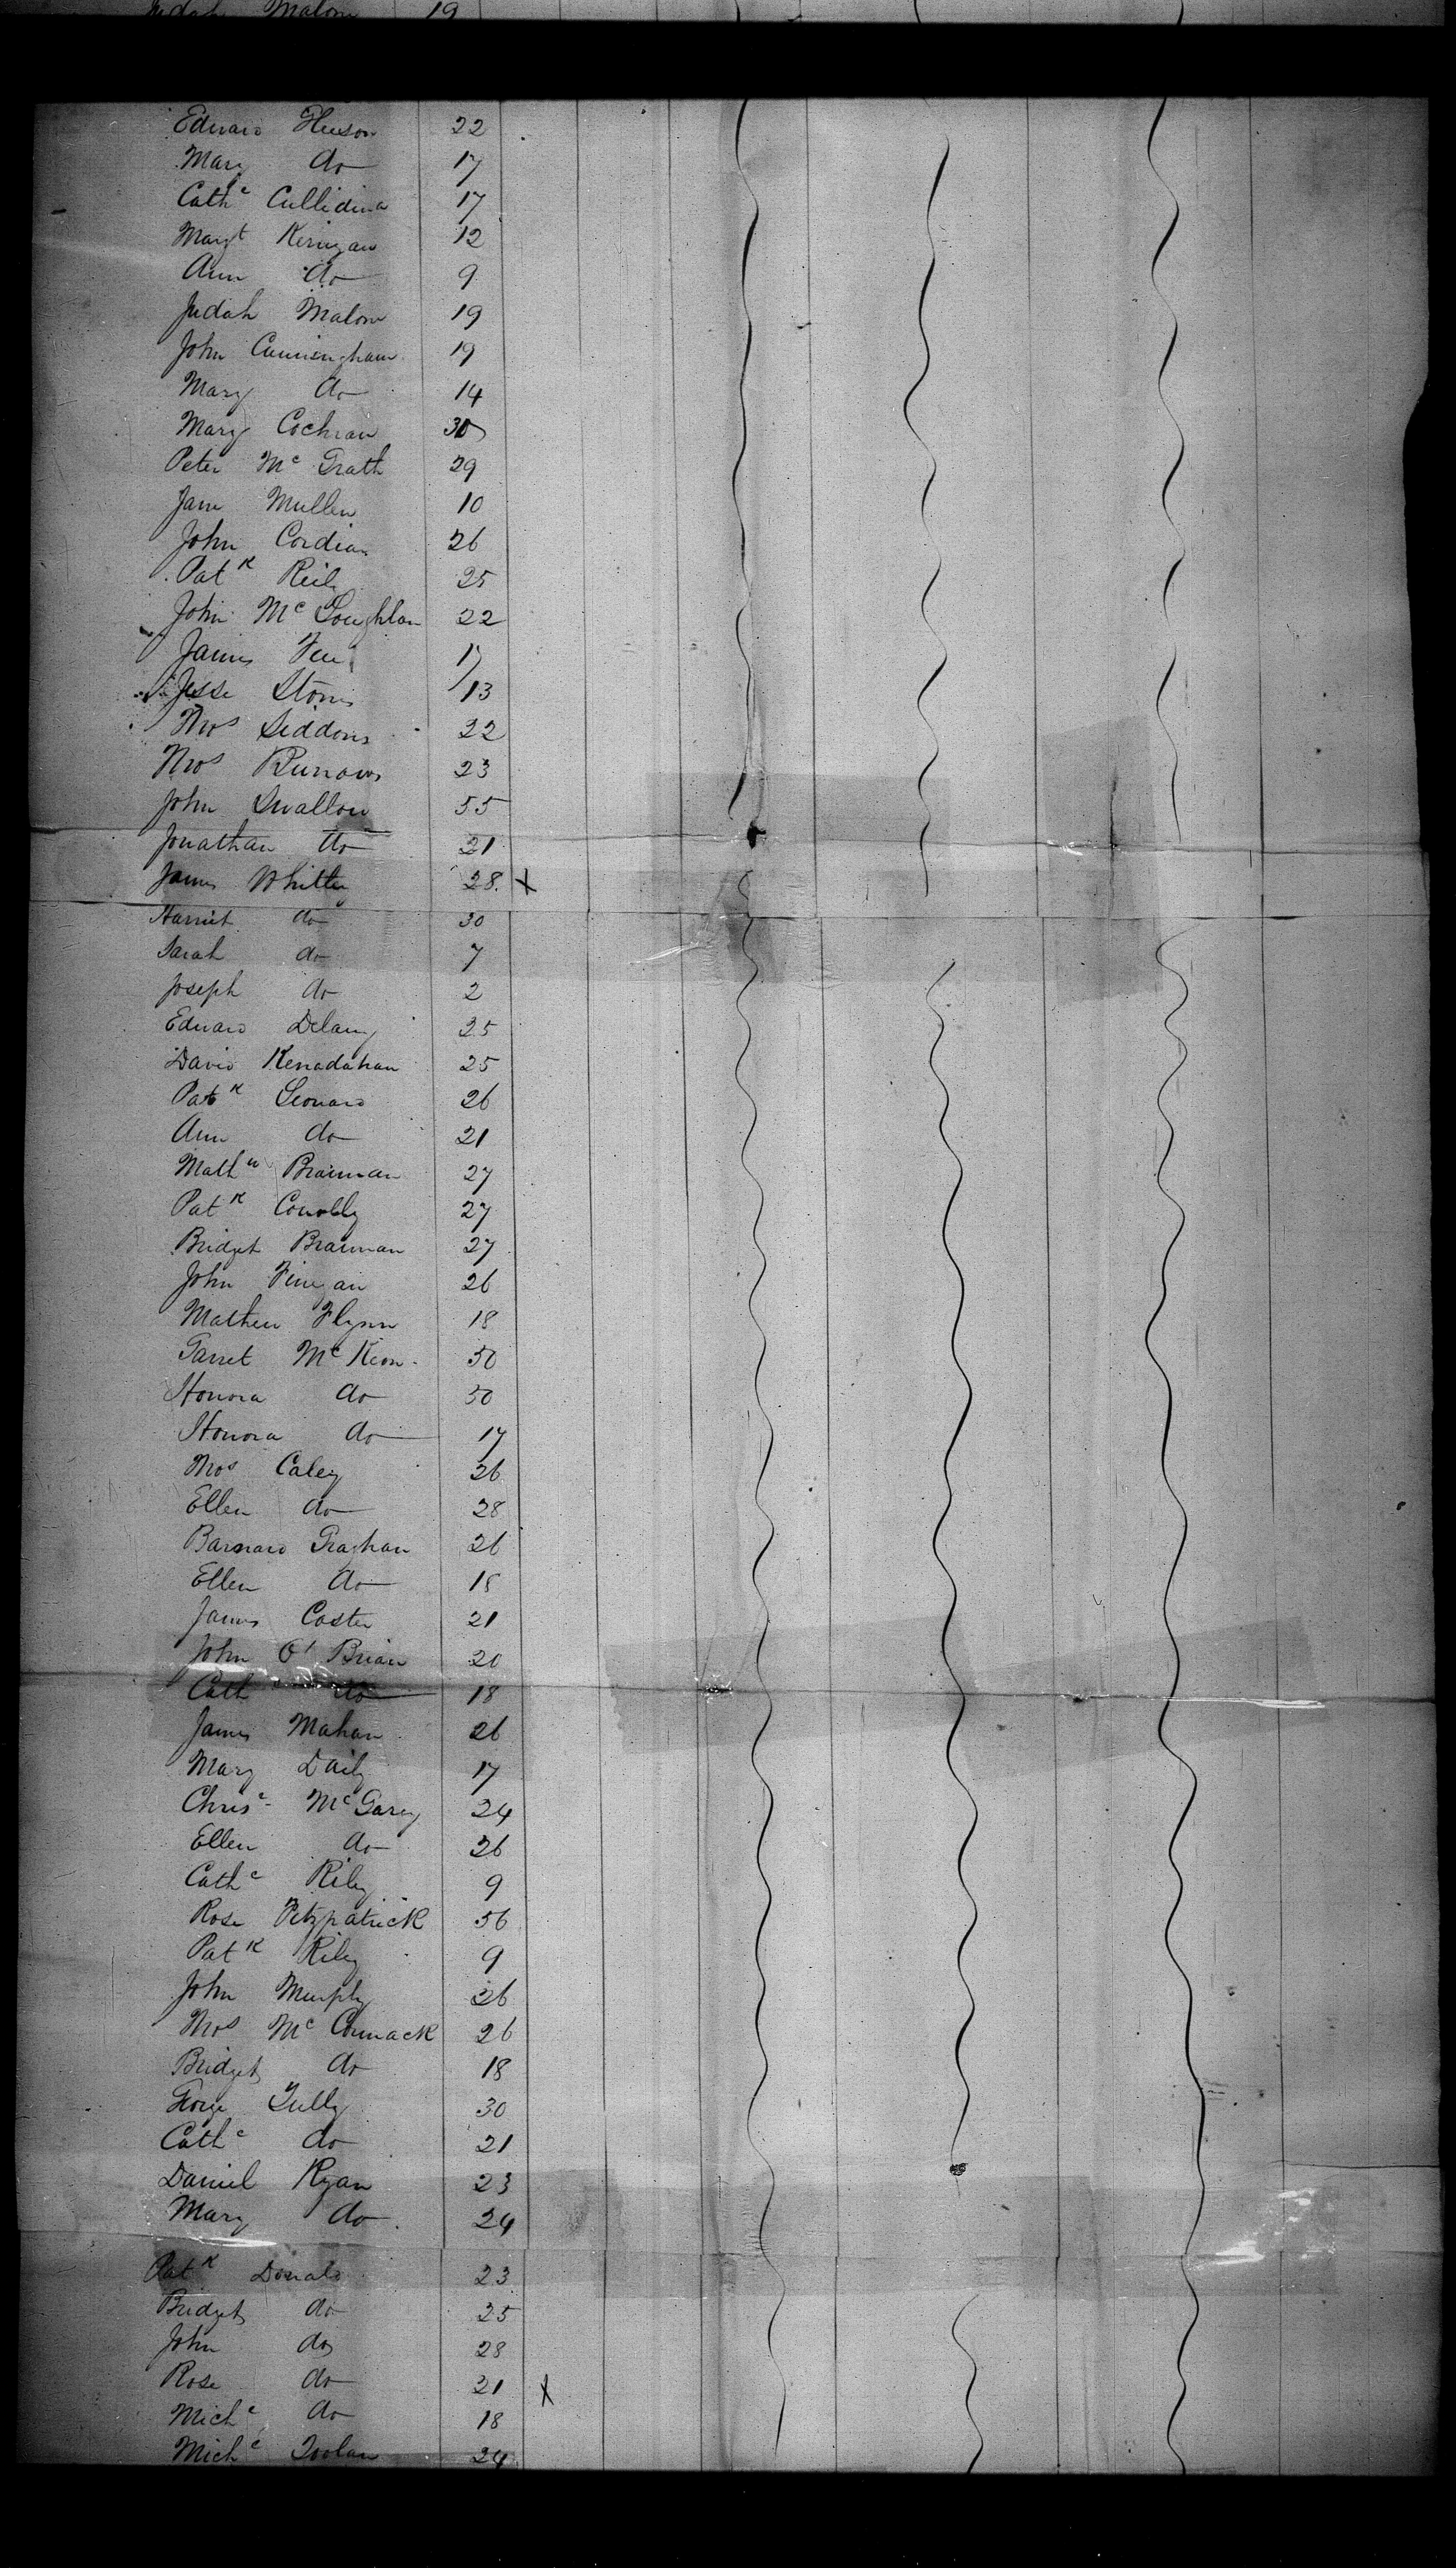 Judah Malone 19
Edward Gleeson 22
Mary do 17
Cathe Cullidina 17
Margt Kerrigan 12
Ann do 9
Judah Malone 19
John Cunningham 19
Mary do 14
Mary Cochran 30
Peter Mc Grath 29
Jane Mullen 10
John Cordian 26
Patk Reily 25
John Mc Loughlan 22
James 17
Jesse Storrs 13
Thos Siddons 22
Thos Burrows 23
John Swallow 55
Jonathan do 21
James Whittey 28. X
Harriet do 30
Sarah do 7
Joseph do 2
Edward Delany 25
David Kenadahan 25
Patk Leonard 26
Ann do 21
Mathw Brannan 27
Patk Conolly 27
Bridget Brannan 27
John Finegan 26
Mathew Flynn 18
Garret Mc Keon 50
Honora do 50
Honora do 17
Thos Caley 26
Ellen do 28
Barnard Graghan 26
Ellen do 18
James Coster 21
John O'Brian 20
Cathe do 18
James Mahan 26
Mary Daily 17
Chrisr Mc Garey 24
Ellen do 26
Cathe Riley 9
Rose Fitzpatrick 56
Patk Riley 9
John Murphy 26
Thos Mc Cormack 26
Bridget do 18
George Tully 30
Cathe do 21
Daniel Ryan 23
Mary do 24
Patk Donald 23
Bridget do 25
John do 28
Rose do 21 X
Michl do 18
Michl Toolan 24